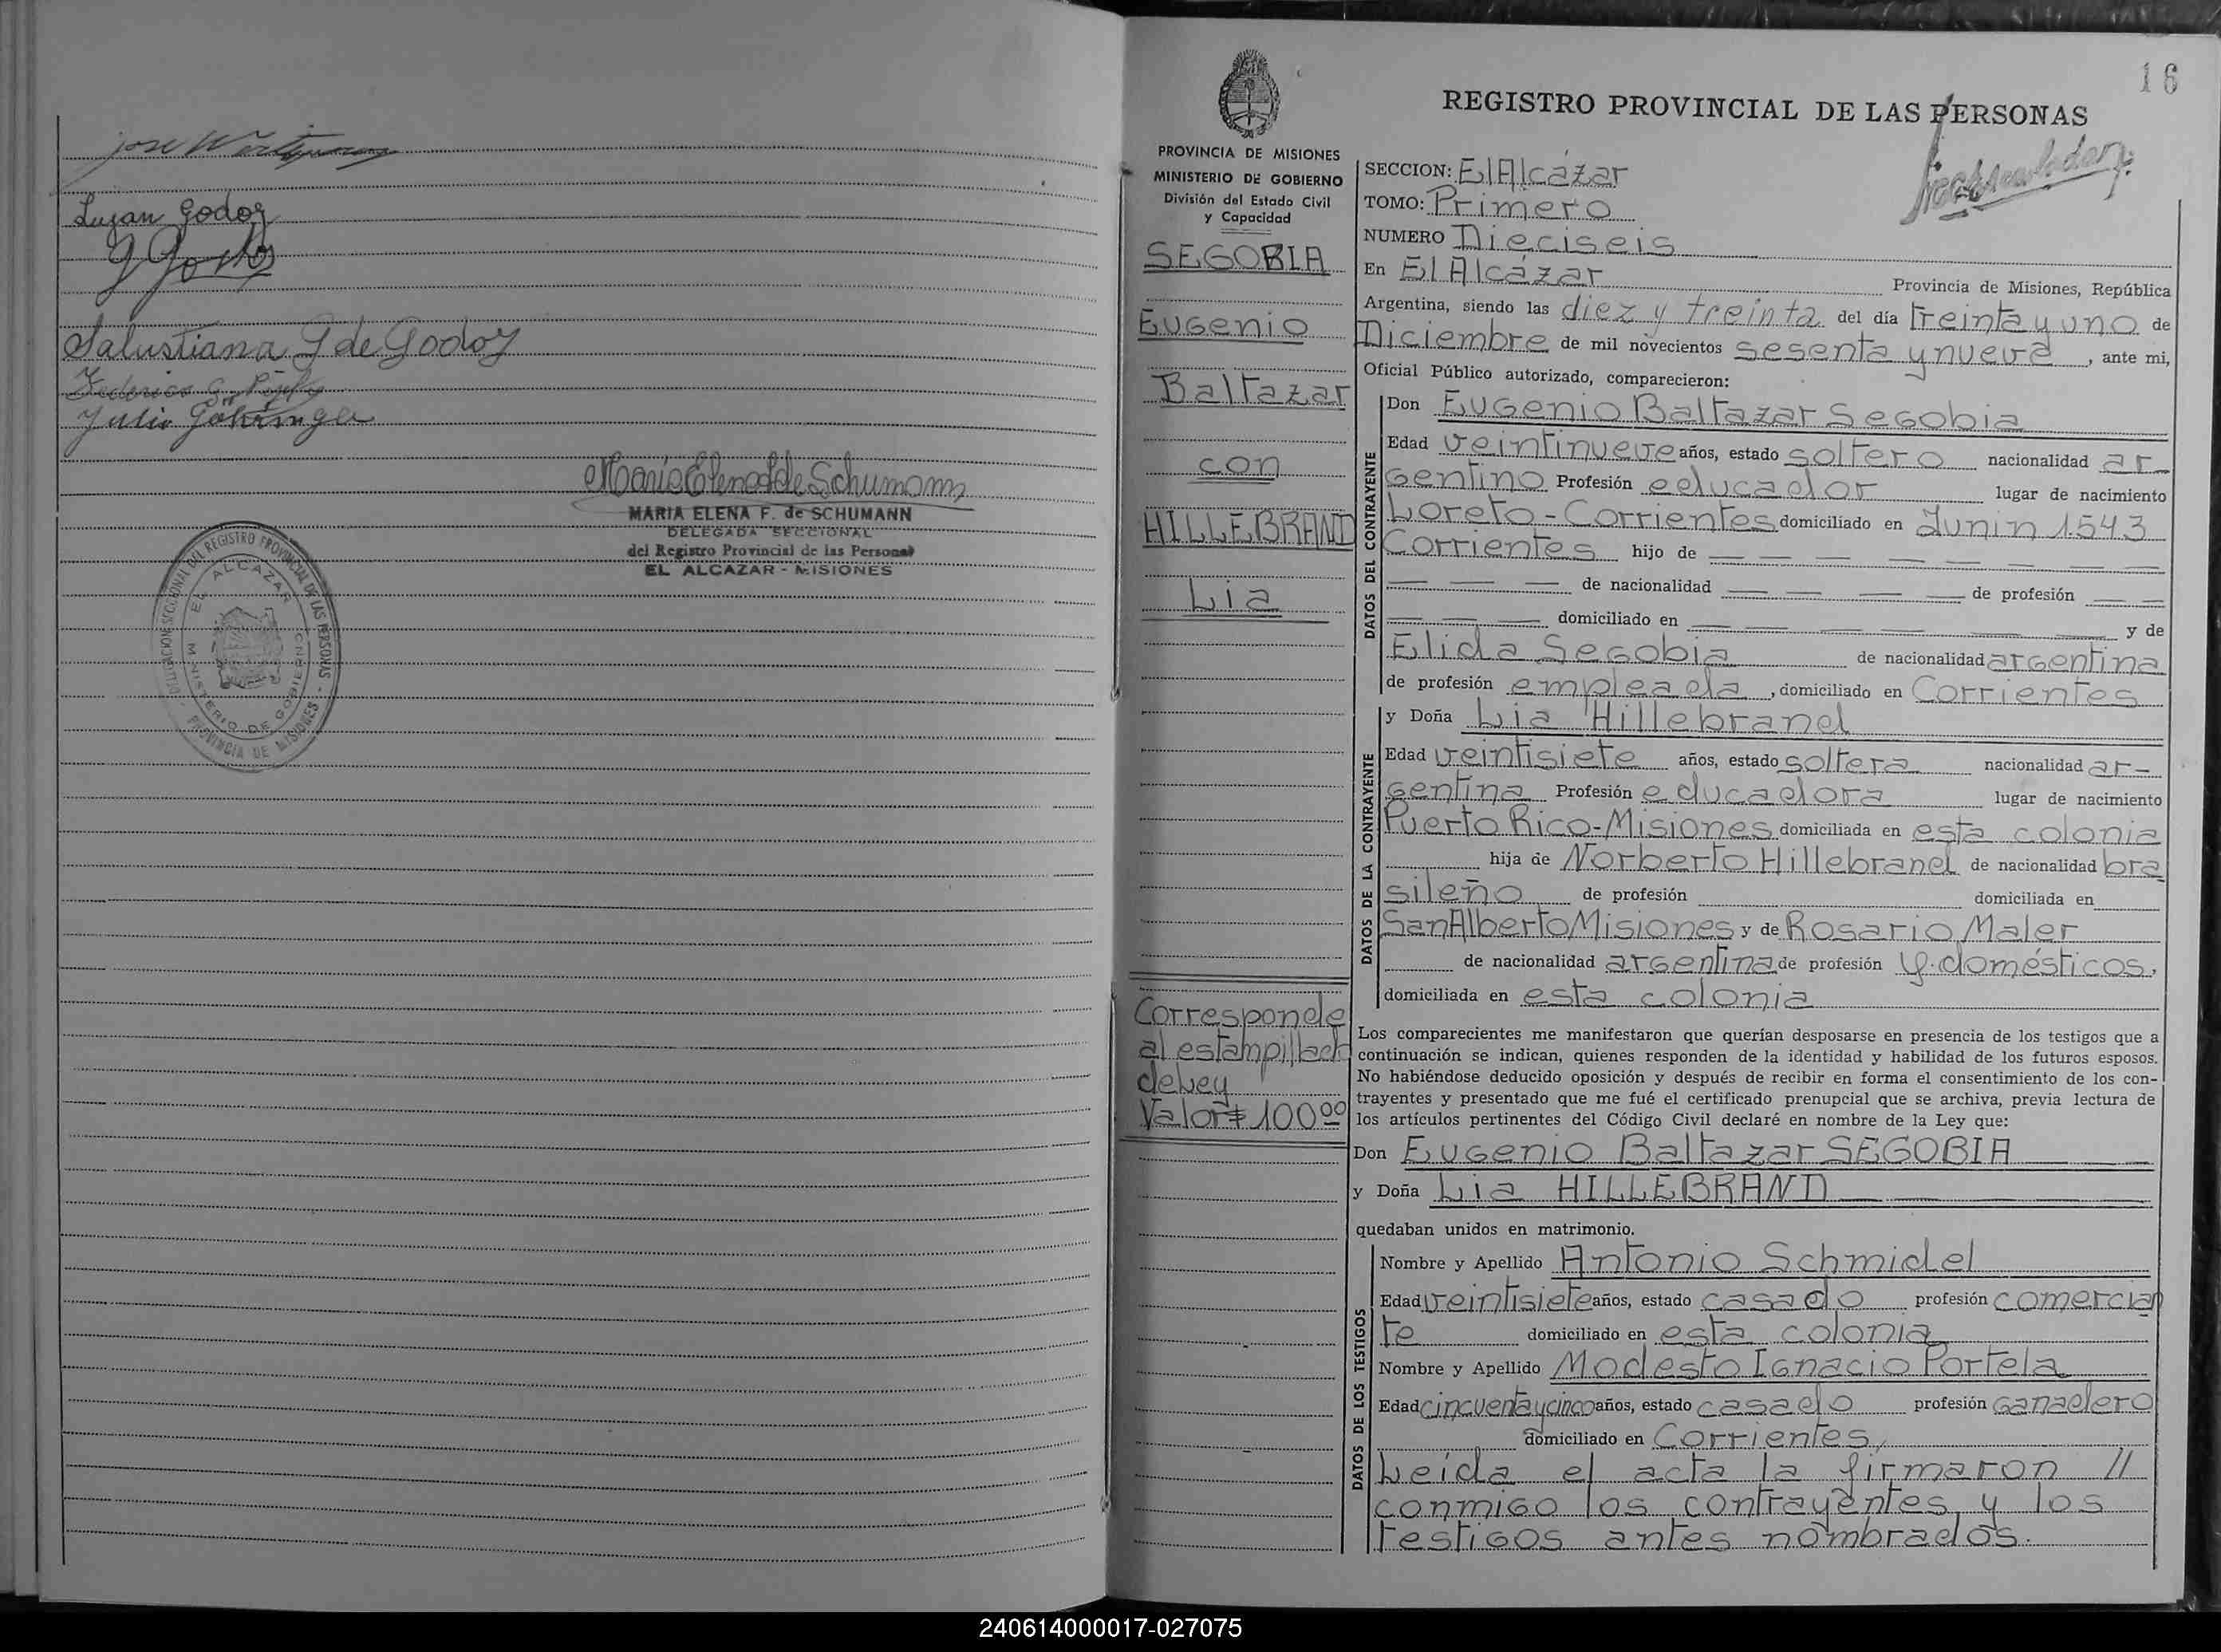 jose
Lujan Godoy
G Godoy
Salustiana G de Godoy
Federico G.
Julio Göhringer
Maria Elena F de Schumann
MARIA ELENA F. de SCHUMANN
DELEGADA SECCIONAL
del Registro Provincial de las Personas
EL ALCAZAR - MISIONES
DELEGACION SECCIONAL DEL REGISTRO PROVINCIAL DE LAS PERSONAS - PROVINCIA DE MISIONES -
EL ALCAZAR
MINISTERIO DE GOBIERNO
16
REGISTRO PROVINCIAL DE LAS PERSONAS
PROVINCIA DE MISIONES
MINISTERIO DE GOBIERNO
División del Estado Civil
y Capacidad
SEGOBIA
Eugenio
Baltazar
con
HILLEBRAND
Lia
Corresponde
al estampillado
de Ley
Valor $ 100⁰⁰
SECCION: El Alcázar
TOMO: Primero
NUMERO Dieciseis
En El Alcázar Provincia de Misiones, República
Argentina, siendo las diez y treinta del día treinta y uno de
Diciembre de mil novecientos sesenta y nueve, ante mi,
Oficial Público autorizado, comparecieron:
DATOS DEL CONTRAYENTE
Don Eugenio Baltazar Segobia
Edad veintinueve años, estado soltero nacionalidad ar-
gentino Profesión educador lugar de nacimiento
Loreto - Corrientes domiciliado en Junin 1543
Corrientes hijo de — — — — — — —
— — — de nacionalidad — — — — de profesión — —
— — — domiciliado en — — — — — y de
Elida Segobia de nacionalidad argentina
de profesión empleada, domiciliado en Corrientes
DATOS DE LA CONTRAYENTE
y Doña Lia Hillebrand
Edad veintisiete años, estado soltera nacionalidad ar-
gentina Profesión educadora lugar de nacimiento
Puerto Rico-Misiones domiciliada en esta colonia
hija de Norberto Hillebrand de nacionalidad bra
sileño de profesión domiciliada en
San Alberto Misiones y de Rosario Maler
de nacionalidad argentina de profesión q. domésticos,
domiciliada en esta colonia
Los comparecientes me manifestaron que querían desposarse en presencia de los testigos que a
continuación se indican, quienes responden de la identidad y habilidad de los futuros esposos.
No habiéndose deducido oposición y después de recibir en forma el consentimiento de los con-
trayentes y presentado que me fué el certificado prenupcial que se archiva, previa lectura de
los artículos pertinentes del Código Civil declaré en nombre de la Ley que:
Don Eugenio Baltazar SEGOBIA
y Doña Lia HILLEBRAND
quedaban unidos en matrimonio.
DATOS DE LOS TESTIGOS
Nombre y Apellido Antonio Schmidel
Edad veintisiete años, estado casado profesión comercian
te domiciliado en esta colonia
Nombre y Apellido Modesto Ignacio Portela
Edad cincuenta y cinco años, estado casado profesión ganadero
domiciliado en Corrientes,
Leída el acta la firmaron //
conmigo los contrayentes y los
testigos antes nombrados.
240614000017-027075